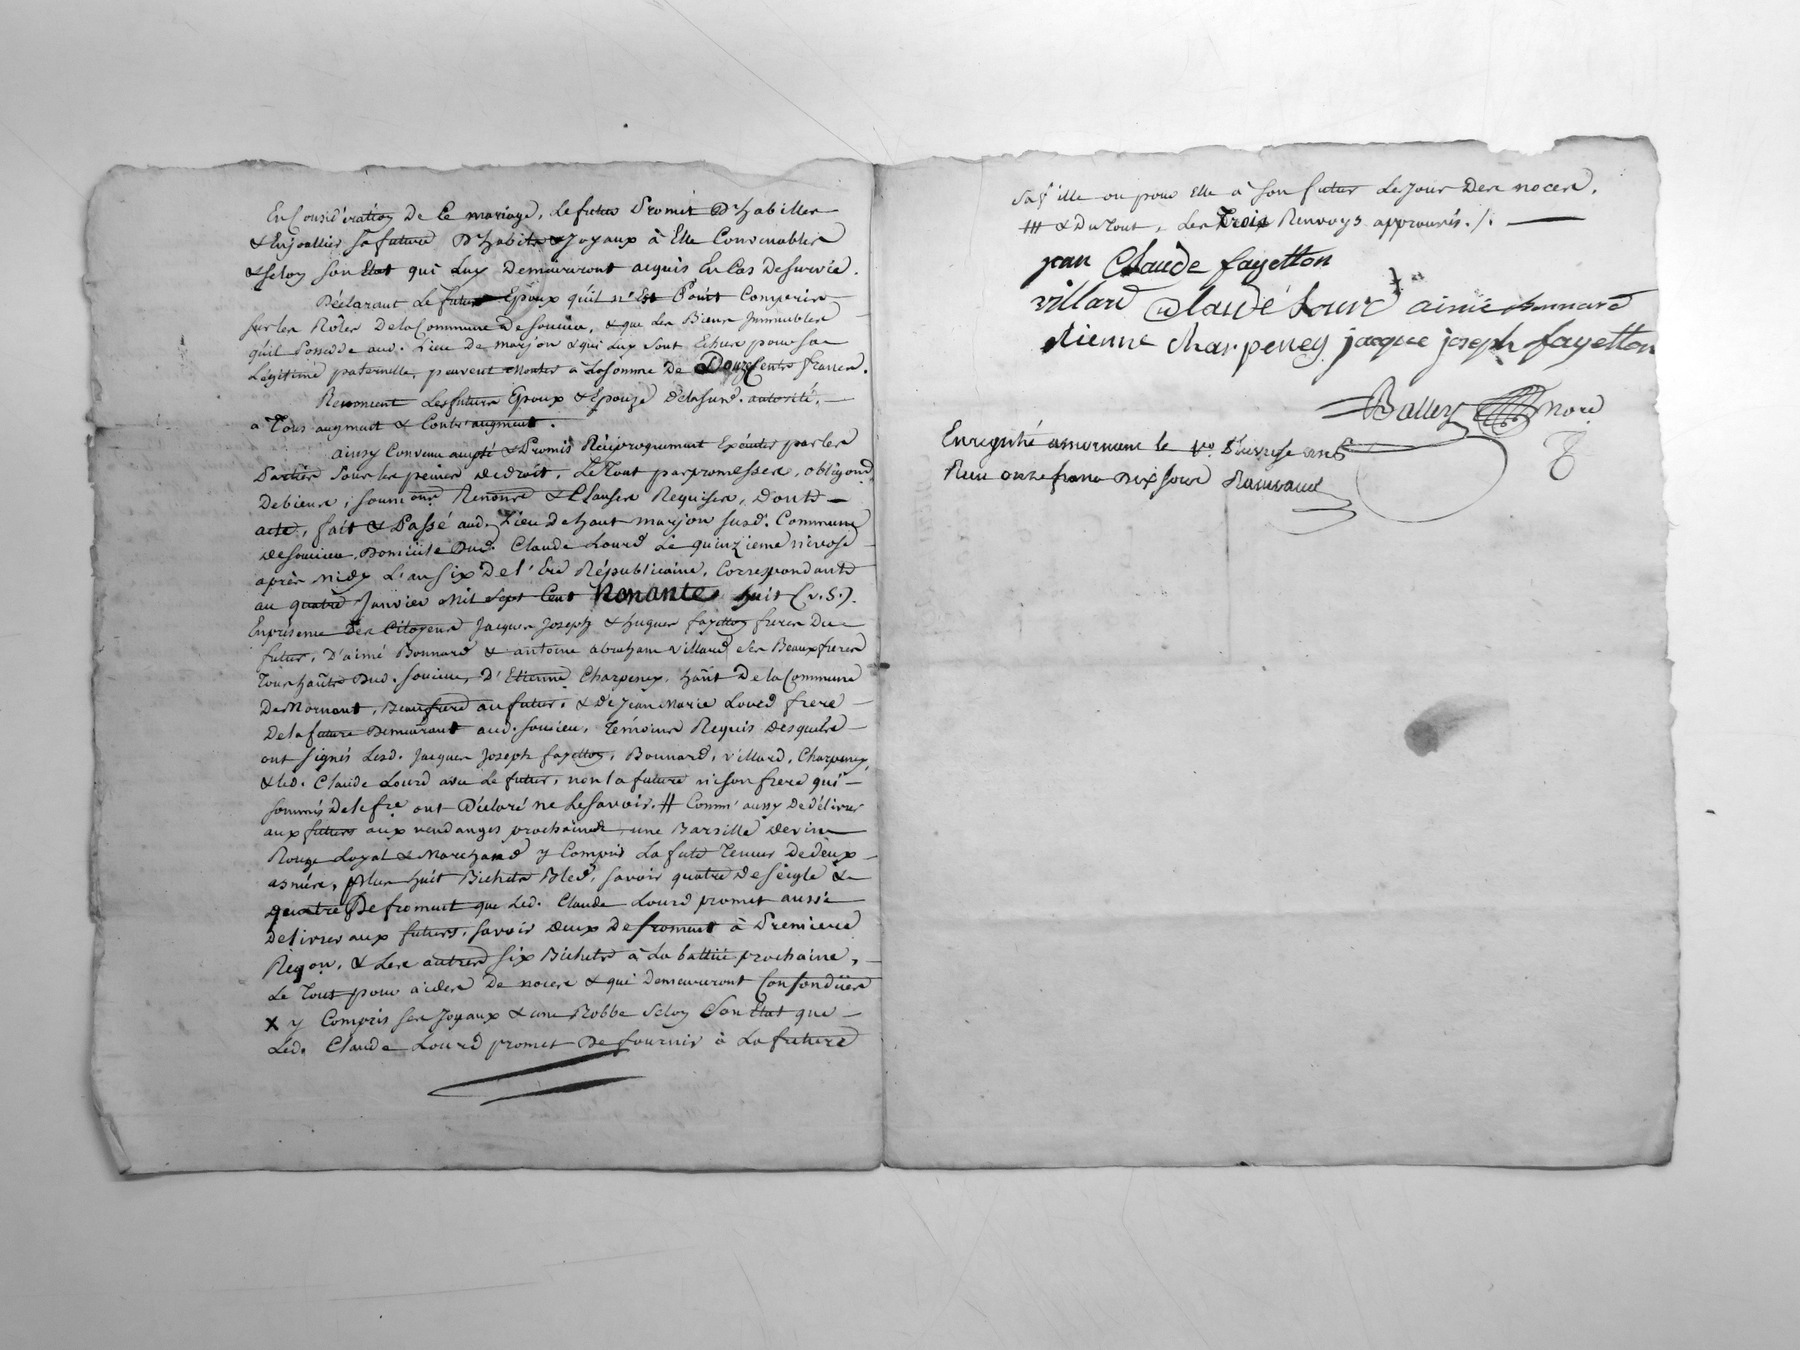 En Considération de Ce mariage, le futur Promet D'habiller
& Enjoallier Sa future D'habits & Joyaux à Elle Convenables
& Selon Son Etat qui Luy Demeureront acquis En Cas De Survie.
Déclarant Le futur Epoux qu'il n'Est Point Comperis
Sur les Rôles De la Commune De Soucieu, & que Les Biens Immeubles
qu'il Possede aud. Lieu De marjon & qui Luy Sont Echus pour Sa
Légitime paternelle, peuvent Monter à La Somme De Douze Cents francs.
Renoncent Les futurs Epoux & Epouze De la Susd. autorité,
à Tous augment & Contr'augment.
ainsy Convenu accepté & Promis Réciproquement Exécuter par les
Parties Sous les peines de droit, Le Tout par promesses, obligeons
De biens, Soumons Renonce & Clauses Requises, Dont
acte, fait & Passé aud. Lieu De haut marjon Susd. Commune
de Soucieu, Domicile Dud. Claude Lourd Le quinzieme nivose
après midy L'an Six De l'Ere Républicaine, Correspondant
au quatre Janvier Mil Sept Cent Nonante huit (v.S.).
En présence Des Citoyens Jacques Joseph & hugues fayetton freres Du
futur, D'aimé Bonnard & antoine abraham villard Ses Beauxfreres
Tous hants Dud. Soucieu, D'Etienne Charpeney, hant De la Commune
De Mornant, Beaufrere au futur, & De Jean Marie Lourd frere
De la future Demeurant aud. Soucieu, Témoins Requis Desquels
ont Signés Lesd. Jacques Joseph fayetton, Bonnard, villard, Charpeney,
& led. Claude Lourd avec Le futur, non la future ni Son frere qui
Sommés De le fre ont Déclaré ne Le Savoir. # Comm' aussy De délivrer
aux futurs aux vendanges prochaines une Barsille de vin
Rouge Loyal & Marchand y Compris La fute Tenue De deux
asnées, Plus huit Bichets Bled, Savoir quatre De Seigle &
quatre De froment que Led. Claude Lourd promet aussi
Delivrer aux futurs, Savoir deux De froment à Premiere
Reqon, & Les autres Six Bichets à La battüe prochaine,
Le Tout pour aides De noces & qui Demeureront Confondües
X y Compris Ses Joyaux & une Robbe Selon Son Etat que
Led. Claude Lourd promet De fournir à La future
Sa fille ou pour Elle à Son futur Le Jour Des noces.
# & Du Tout, Les Trois Renvoys approuvés ./.
jean Claude fayetton
villard Claude Lourd aimé bonnard
etienne charpeney jacque joseph fayetton
Balley Nore
Enregistré a mornant le 1er pluviose an 6
Reçu onze francs dix sous